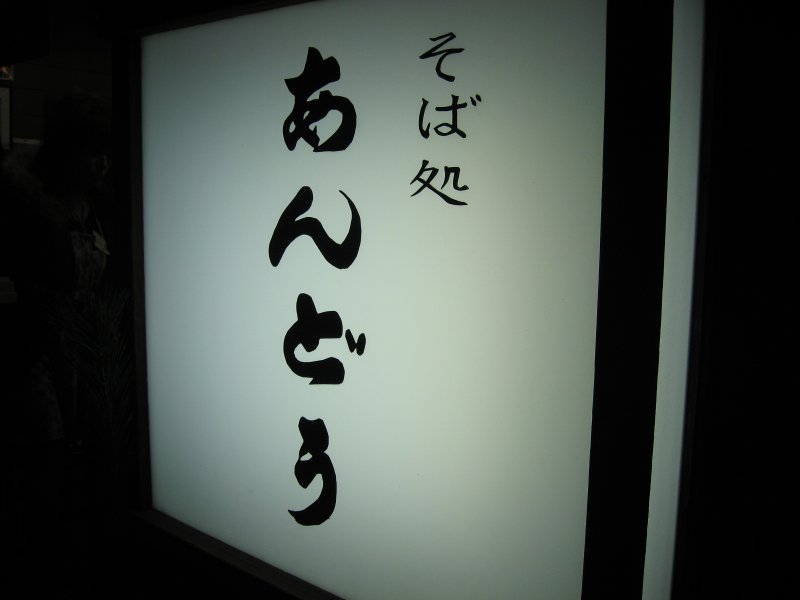 そば処
あんどう